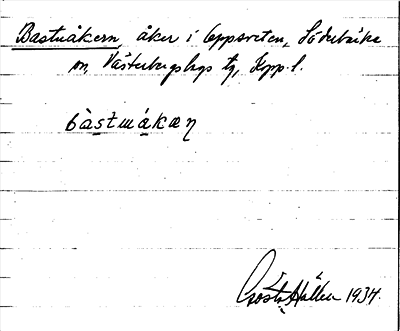 Bastmåkern, åker i Uppsveten, Söderbärke
sn, Västerbergslags tg, Kopp. l.
bàstmákæɳ
Gösta Hallen 1934.